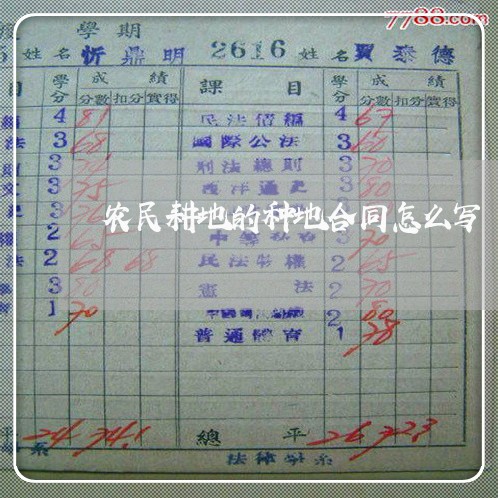 7788.com
學期
姓名 忻鼎明 2616 姓名 賈泰德
目 學分 成績 課目 學分 成績
分數 扣分 實得 分數 扣分 實得
4 81 民法債編 4 67
法 3 68 國際公法 3 60
3 刑法總則 3 70
3 75 西洋通史 3 80
農民耕地的种地合同怎么写
2 65 3 70
法 2 68 68 民法物權 2 65
3 80 憲法 2 70
1 70 2 80
普通體育 1 78
平 24 74.1 總平 26 72.3
系 法律學系